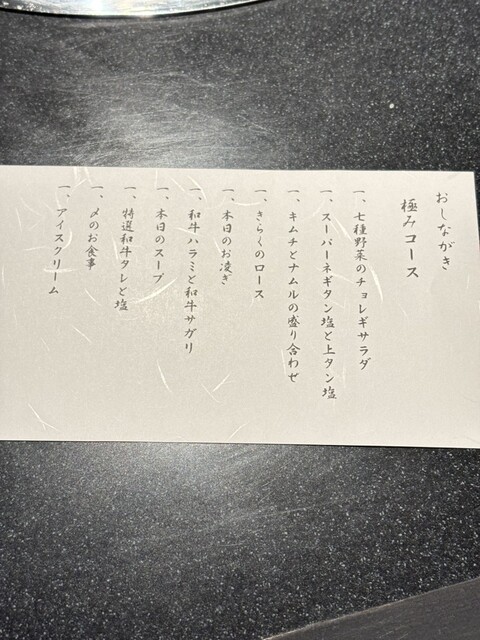 おしながき
極みコース
一、七種野菜のチョレギサラダ
一、スーパーネギタン塩と上タン塩
一、キムチとナムルの盛り合わせ
一、きらくのロース
一、本日のお凌ぎ
一、和牛ハラミと和牛サガリ
一、本日のスープ
一、特選和牛タレと塩
一、〆のお食事
一、アイスクリーム